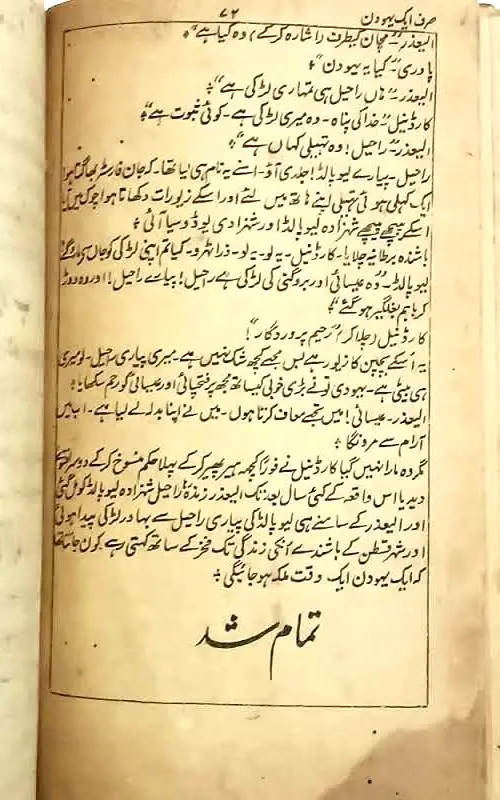 صرف ایک یہودن ۷۲
الیعذر۔ "مچان کیطرف اشارہ کرکے) وہ کیا ہے"؟
پادری۔ "کیا یہ یہودن"؟
الیعذر۔ "ہاں راحیل ہی تمہاری لڑکی ہے"؟
کارڈنیل۔ "خدا کی پناہ۔ وہ میری لڑکی ہے۔ کوئی ثبوت ہے"؟
الیعذر۔ "راحیل! وہ تھیلی کہاں ہے"؟
راحیل۔ پیارے لیوپالڈ! جلدی آؤ۔ اسنے یہ نام ہی لیا تھا۔ کہ جان فارسٹر بھاگتا ہوا
ایک کھلی ہوئی تھیلی اپنے ہاتھ میں لئے اور اسکے زیورات دکھاتا ہوا چوک میں
اسکے پیچھے پیچھے شہزادہ لیوپالڈ اور شہزادی لیوڈوسیا آئی؟
باشندہ برطانیہ چلایا۔ کارڈنیل۔ یہ لو۔ یہ لو۔ ذرا ٹھرو۔ کیا تم اپنی لڑکی کو جان سے
لیوپالڈ۔ "وہ عیسائی اور بروگنی کی لڑکی ہے راحیل! پیاری راحیل!! اور وہ دوڑ
کر باہم بغلگیر ہو گئے"؟
کارڈنیل (چلا کر) "رحیم پروردگار"!
یہ اسکے بچپن کا زیور ہے بس مجھے کچھ شک نہیں ہے۔ میری پیاری راحیل۔ تو میری
ہی بیٹی ہے۔ یہودی تو نے بڑی خوبی کیساتھ مجھ پر فتح پائی اور عیسائی کو رحم سکھایا؟
الیعذر۔ عیسائی! میں تجھے معاف کرتا ہوں۔ میں نے اپنا بدلہ لے لیا ہے۔ اب میں
آرام سے مرونگا؟
مگر وہ مارا نہیں گیا کارڈنیل نے فوراً کچھ ہیر پھیر کر کے پہلا حکم منسوخ کرکے دوسرا
دیدیا اس واقعہ کے کئی سال بعد تک الیعذر زندہ رہا راحیل شہزادہ لیوپالڈ کو مل گئی
اور الیعذر کے سامنے ہی لیوپالڈ کی پیاری راحیل سے بہادر لڑکی پیدا ہوئی
اور شہر قسطن کے باشندے اُنکی زندگی تک فخر کے ساتھ کہتے رہے کون جانتا تھا
کہ ایک یہودن ایک وقت ملکہ ہو جائیگی؟
تمام شد